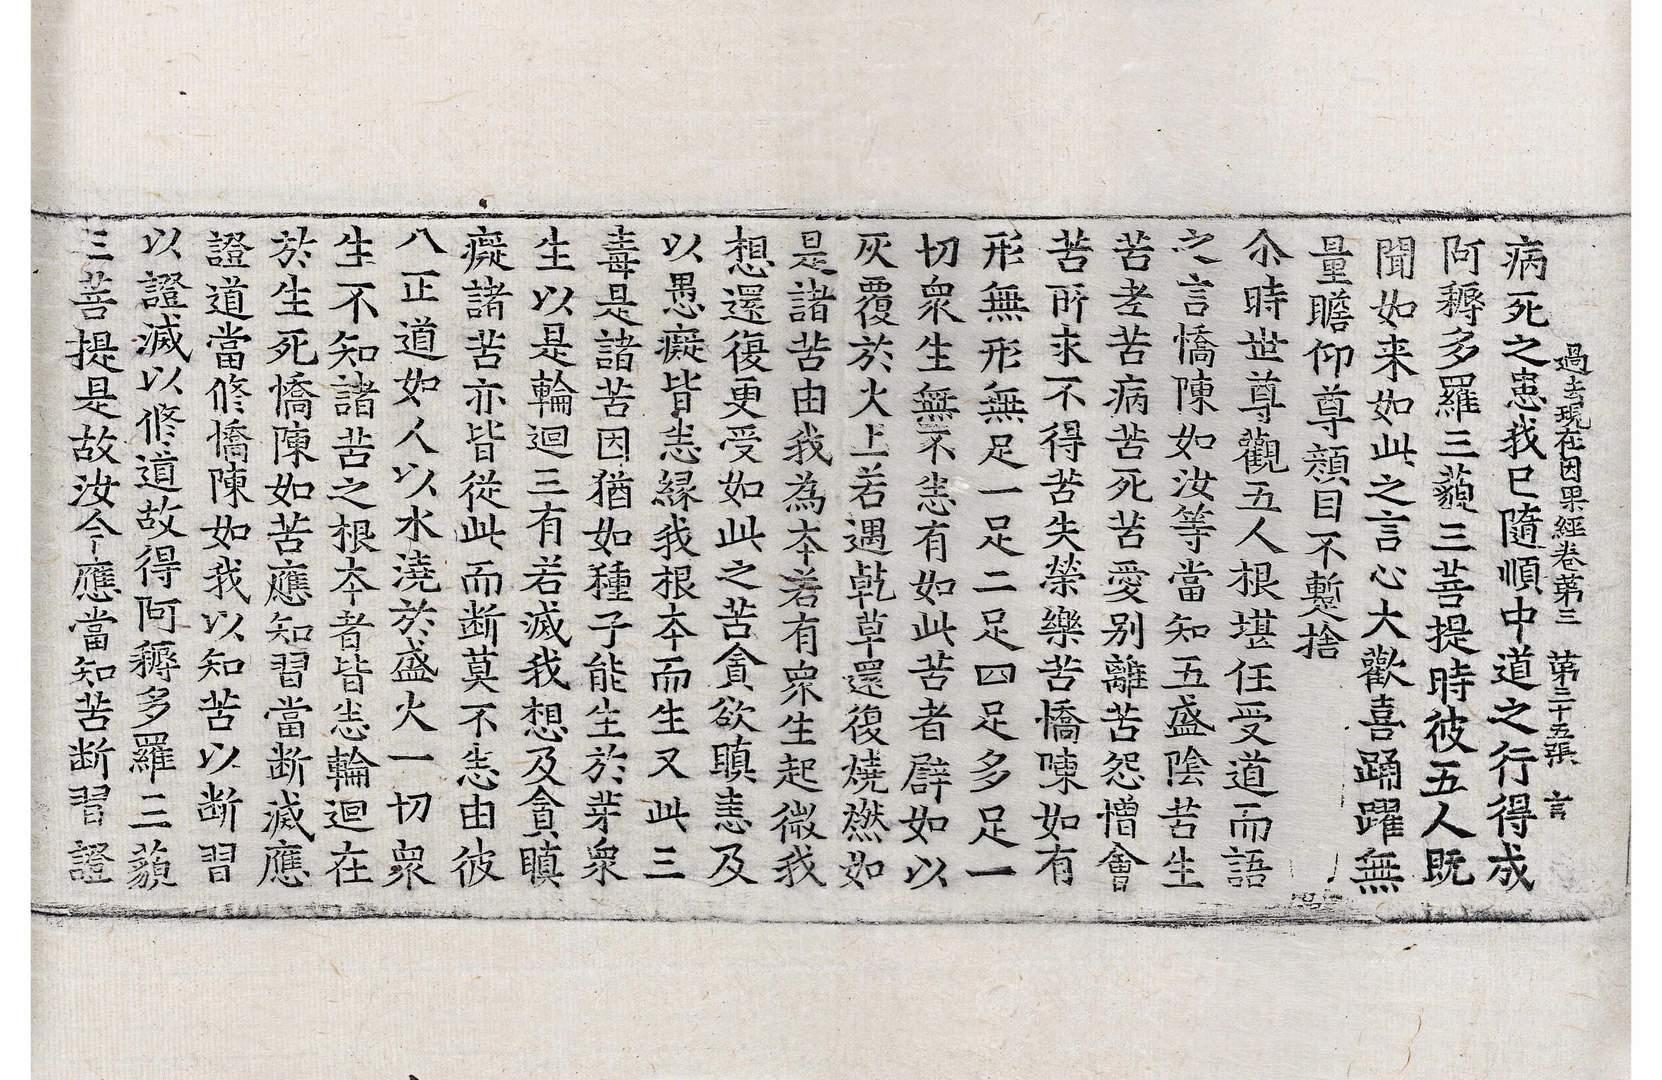 過去現在因果經卷第三 第二十五張 言
病死之患我已隨順中道之行得成
阿耨多羅三藐三菩提時彼五人既
聞如来如此之言心大歡喜踊躍無
量瞻仰尊顔目不暫捨
尒時世尊觀五人根堪任受道而語
之言憍陳如汝等當知五盛陰苦生
苦老苦病苦死苦愛别離苦怨憎會
苦所求不得苦失榮樂苦憍陳如有
形無形無足一足二足四足多足一
切衆生無不悉有如此苦者譬如以
灰覆於火上若遇乹草還復燒燃如
是諸苦由我為夲若有衆生起微我
想還復更受如此之苦貪欲瞋恚及
以愚癡皆悉緣我根夲而生又此三
毒是諸苦因猶如種子能生於芽衆
生以是輪迴三有若滅我想及貪瞋
癡諸苦亦皆從此而断莫不悉由彼
八正道如人以水澆於盛火一切衆
生不知諸苦之根夲者皆悉輪迴在
於生死憍陳如苦應知習當断滅應
證道當修憍陳如我以知苦以断習
以證滅以修道故得阿耨多羅三藐
三菩提是故汝今應當知苦断習證